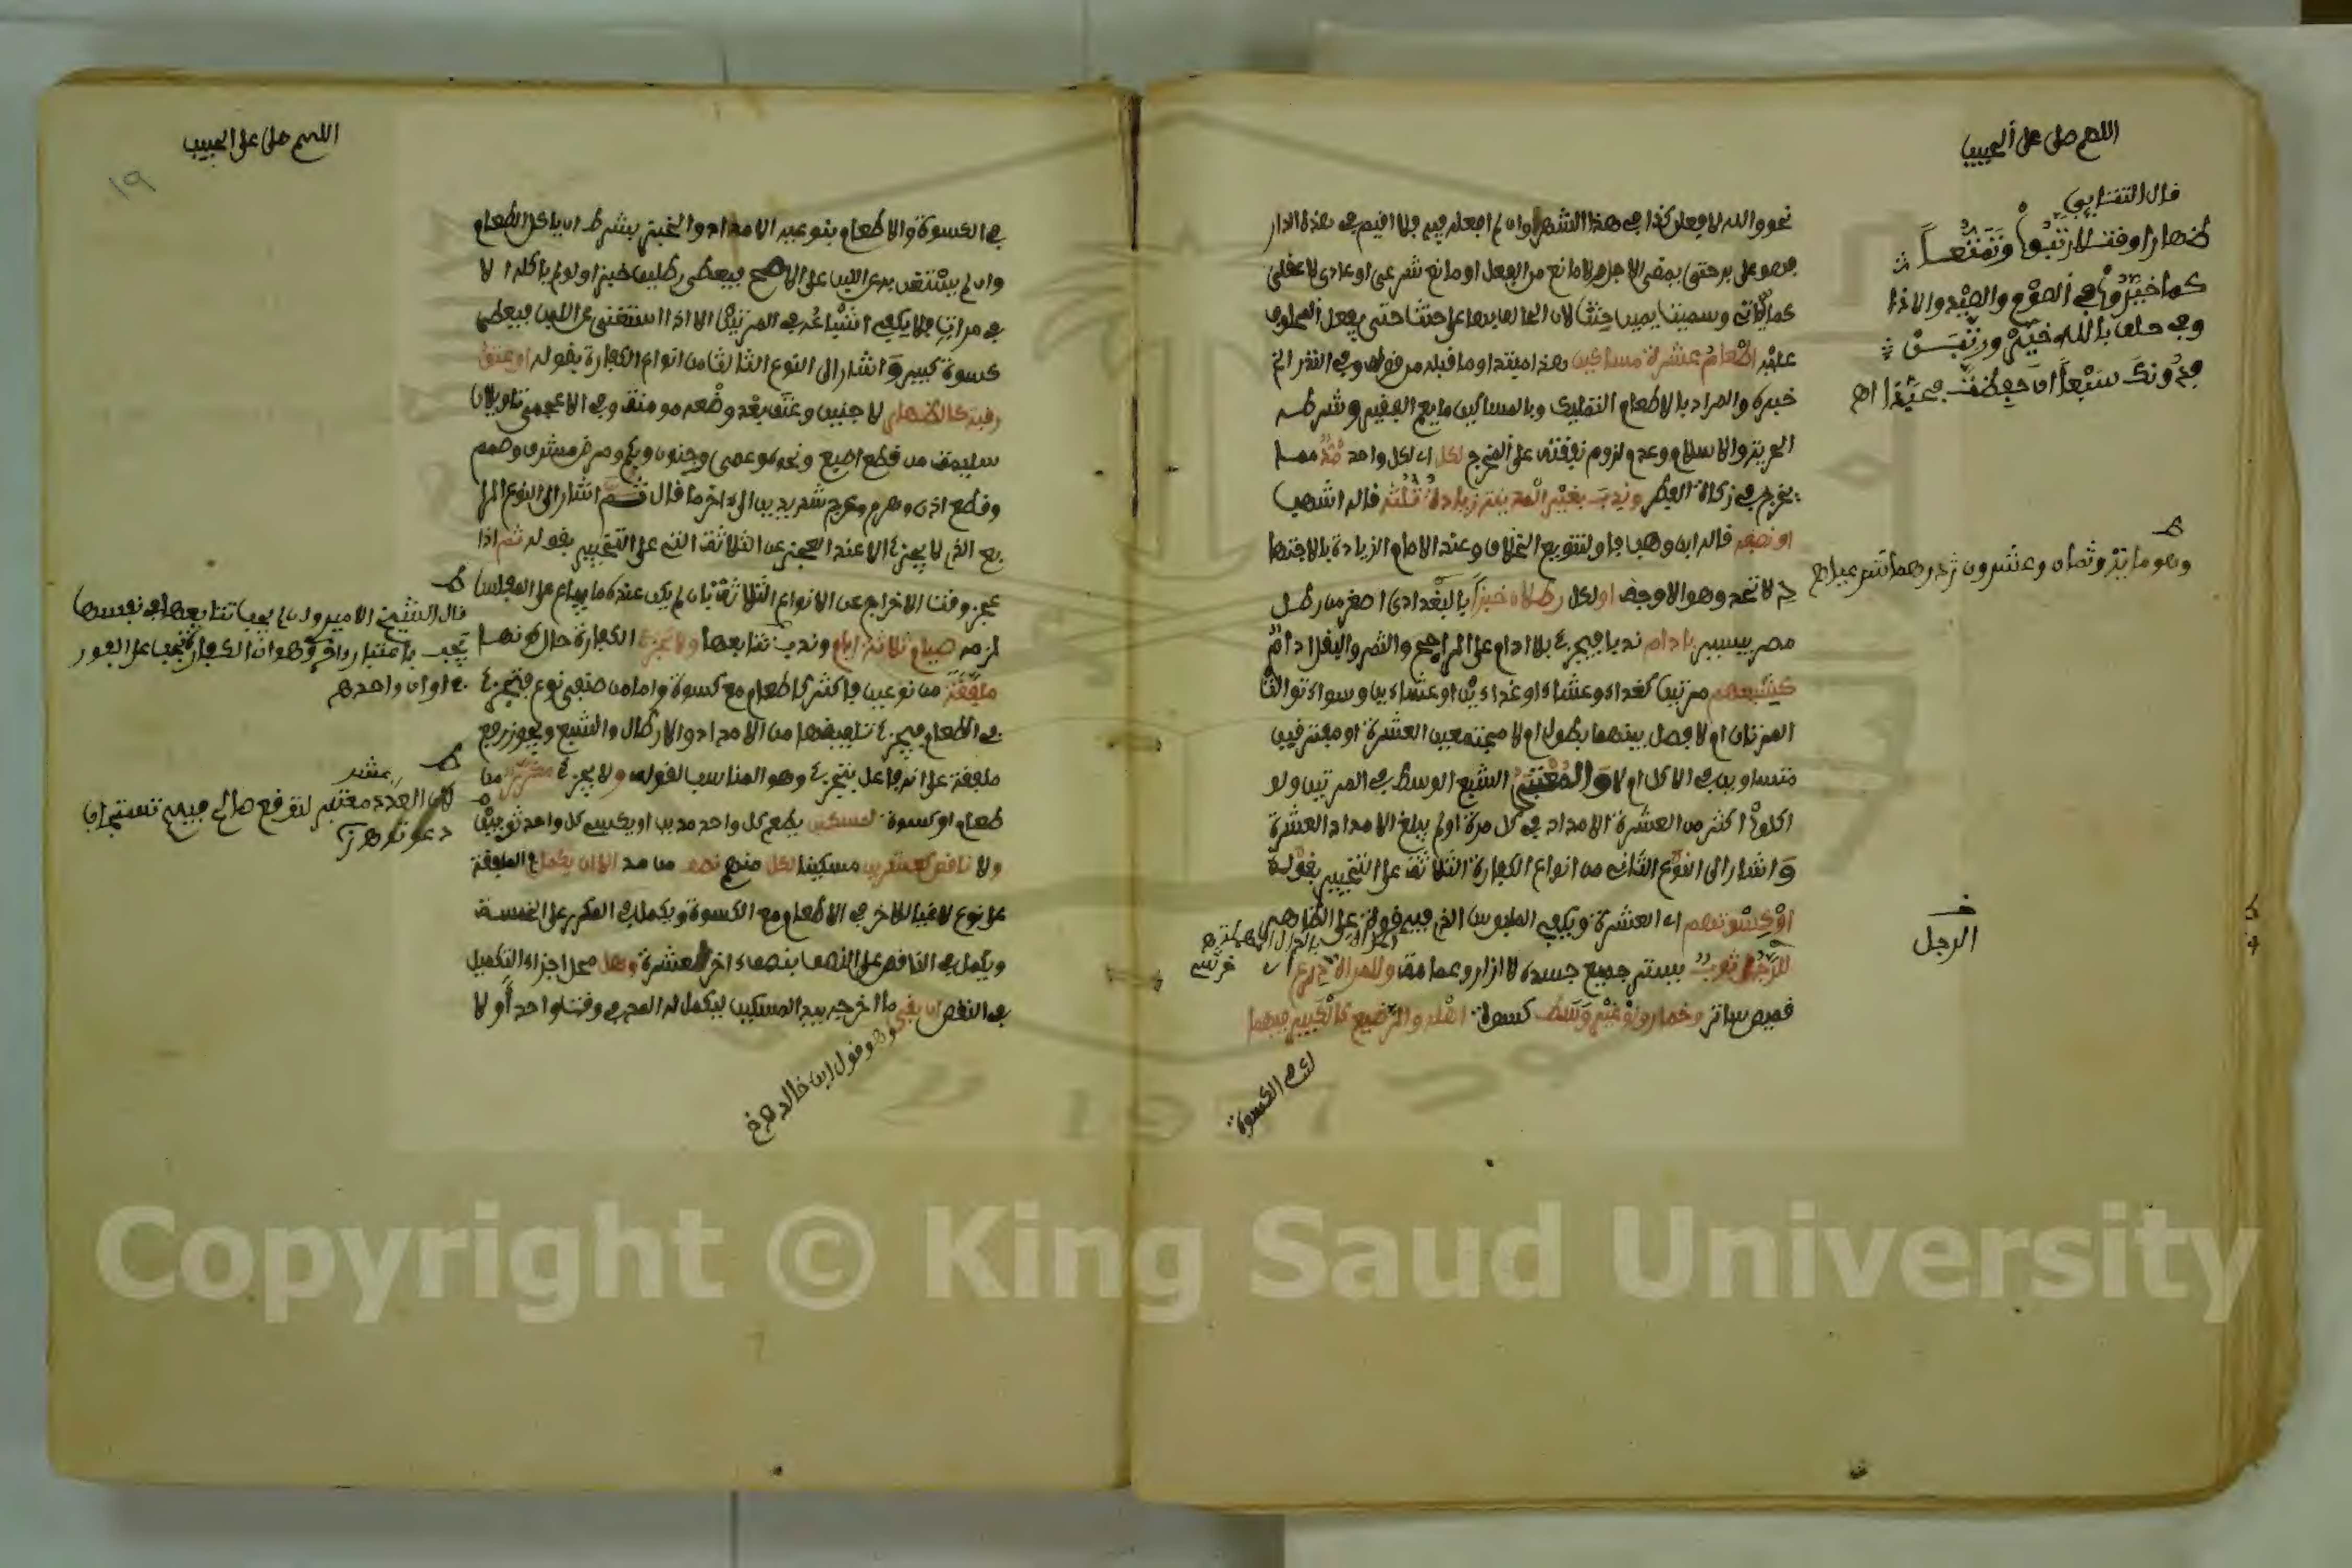 اللهم صل على الحبيب
قال التتائي
ظهارا وقتلا رتبوا وتمتعا
كما خيروا في الصوم والصيد والاذا
وفي حلف بالله خير ورتبن
فدونك سبعا ان حفظت فحبذا اه
نحو والله لافعلن كذا في هذا الشهر او ان لم افعله فيه فلا اقيم في هذه الدار
فهو على بر حتى يمضي الاجل ولا مانع من الفعل او مانع شرعي او عادي لا عقلي
كما ياتي وسميت يمين حنث لان الحالف بها على حنث حتى يفعل المحلوف
عليه اطعام عشرة مساكين هذا مبتدا وما قبله من قوله وفي النذر الخ
خبره والمراد بالاطعام التمليك وبالمساكين ما يعم الفقير وشرطه
الحرية والاسلام وعدم لزوم نفقته على المخرج لكل اي لكل واحد مد مما
يخرج في زكاة الفطر وندب بغير المدينة زيادة ثلثه قاله اشهب
او نصفه قاله ابن وهب فاو لتنويع الخلاف وعند الامام الزيادة بالاجتها
د لا تحد وهو الاوجه او لكل رطلان خبزا بالبغدادي اصغر من رطل
مصر بيسير بادام ندبا فيجزئ بلا ادام على الراجح والتمر والبقل ادام
كشبعهم مرتين كغداء وعشاء او غداءين او عشاءين وسواء توالت
المرتان ام لا فصل بينهما بطول ام لا مجتمعين العشرة او مفترقين
متساوين في الاكل ام لا والمعتبر الشبع الوسط في المرتين ولو
اكلوا اكثر من العشرة الامداد في كل مرة او لم يبلغ الامداد العشرة
واشار الى النوع الثاني من انواع الكفارة الثلاثة على التخيير بقوله
او كسوتهم اي العشرة ويكفي الملبوس الذي فيه قوة على الظاهر
للرجل ثوب يستر جميع جسده لا ازار وعمامة وللمراة درع
قميص ساتر وخمار ولو غير وسط كسوة اهله والرضيع كالكبير فيهما
اي في الكسوة
وهو مائة وثمان وعشرون درهما
الرجل
اللهم صل على الحبيب
١٩
في الكسوة والاطعام بنوعيه الامداد والخبز بشرط ان ياكل الطعام
وان لم يستغن به عن اللبن على الاصح فيعطى رطلين خبزا ولو لم ياكله الا
في مرات فلا يكفي اشباعه في المرتين الا اذا استغنى عن اللبن فيعطى
كسوة كبير واشار الى النوع الثالث من انواع الكفارة بقوله او عتق
رقبة كالظهار لا جنين وعتق بعد وضعه مومنة وفي الاعجمي تاويلان
سليمة من قطع اصبع ونحوه وعمى وجنون وبكم ومرض مشرف وصمم
وقطع اذن وهرم وعرج شديدين الى اخر ما قال ثم اشار الى النوع الرا
بع الذي لا يجزئ الا عند العجز عن الثلاثة التي على التخيير بقوله ثم اذا
عجز وقت الاخراج عن الانواع الثلاثة بان لم يكن عنده ما يباع على المفلس
لزمه صيام ثلاثة ايام وندب تتابعها ولا تجزئ الكفارة حال كونها
ملفقة من نوعين فاكثر كاطعام مع كسوة واما من صنفي نوع فيجزئ
في الطعام فيجزئ تلفيقها من الامداد والارطال والشبع ويجوز رفع
ملفقة على انه فاعل تجزئ وهو المناسب لقوله ولا يجزئ مكرر من
طعام او كسوة لمسكين يطعم كل واحد مدين او يكسي كل واحد ثوبين
ولا ناقص كعشرين مسكينا لكل منهم نصف من مد الا ان يكمل في الملفقة
على نوع لاغيا للاخر في الاطعام مع الكسوة ويكمل في المكرر على الخمسة
ويكمل في الناقص على النصف بنصف اخر لعشرة وهل محل اجزاء التكميل
في النقص ان بقي ما اخرجه بيد المسكين ليكمل له المد في وقت واحد او لا
وهو قول ابن خالد
قال الشيخ الامير وان لم يجب تتابعها في نفسها
يجب باعتبار
لان العدد معتبر